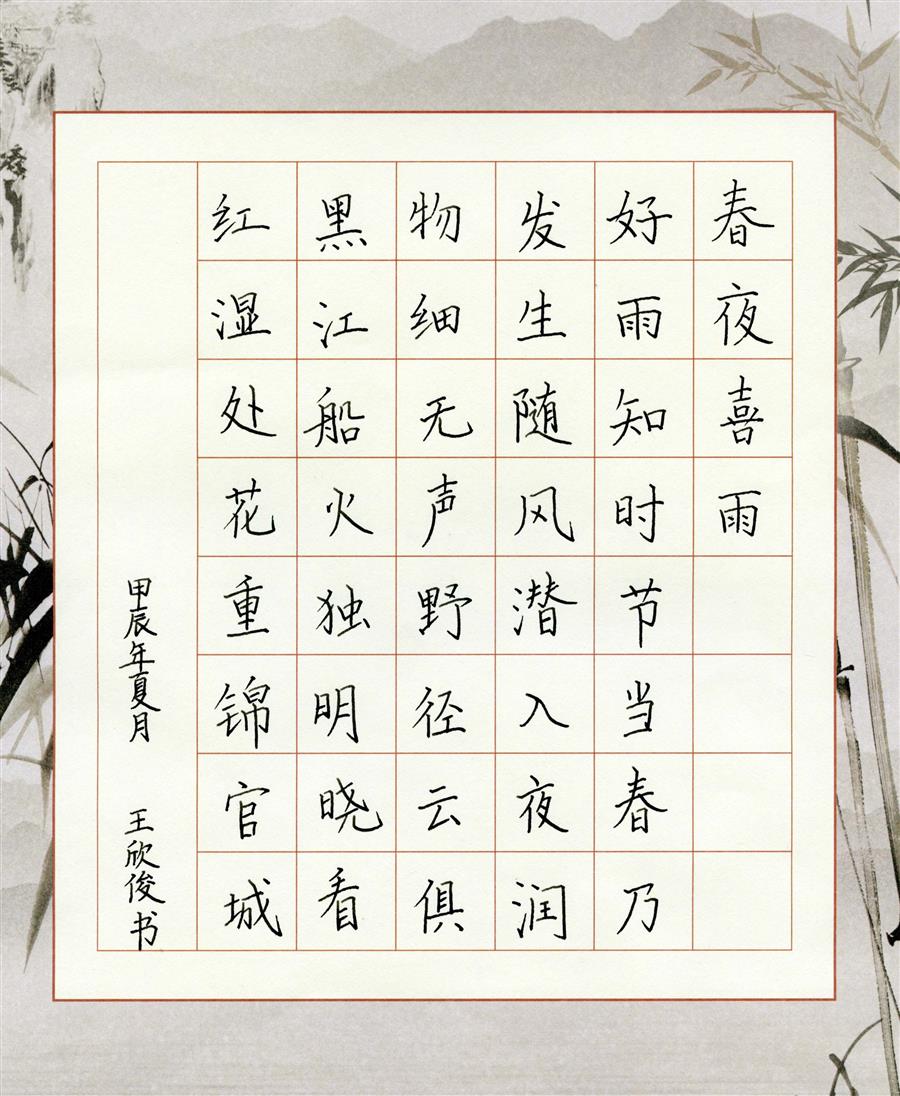 春夜喜雨
好雨知时节当春乃
发生随风潜入夜润
物细无声野径云俱
黑江船火独明晓看
红湿处花重锦官城
甲辰年夏月 王欣俊书